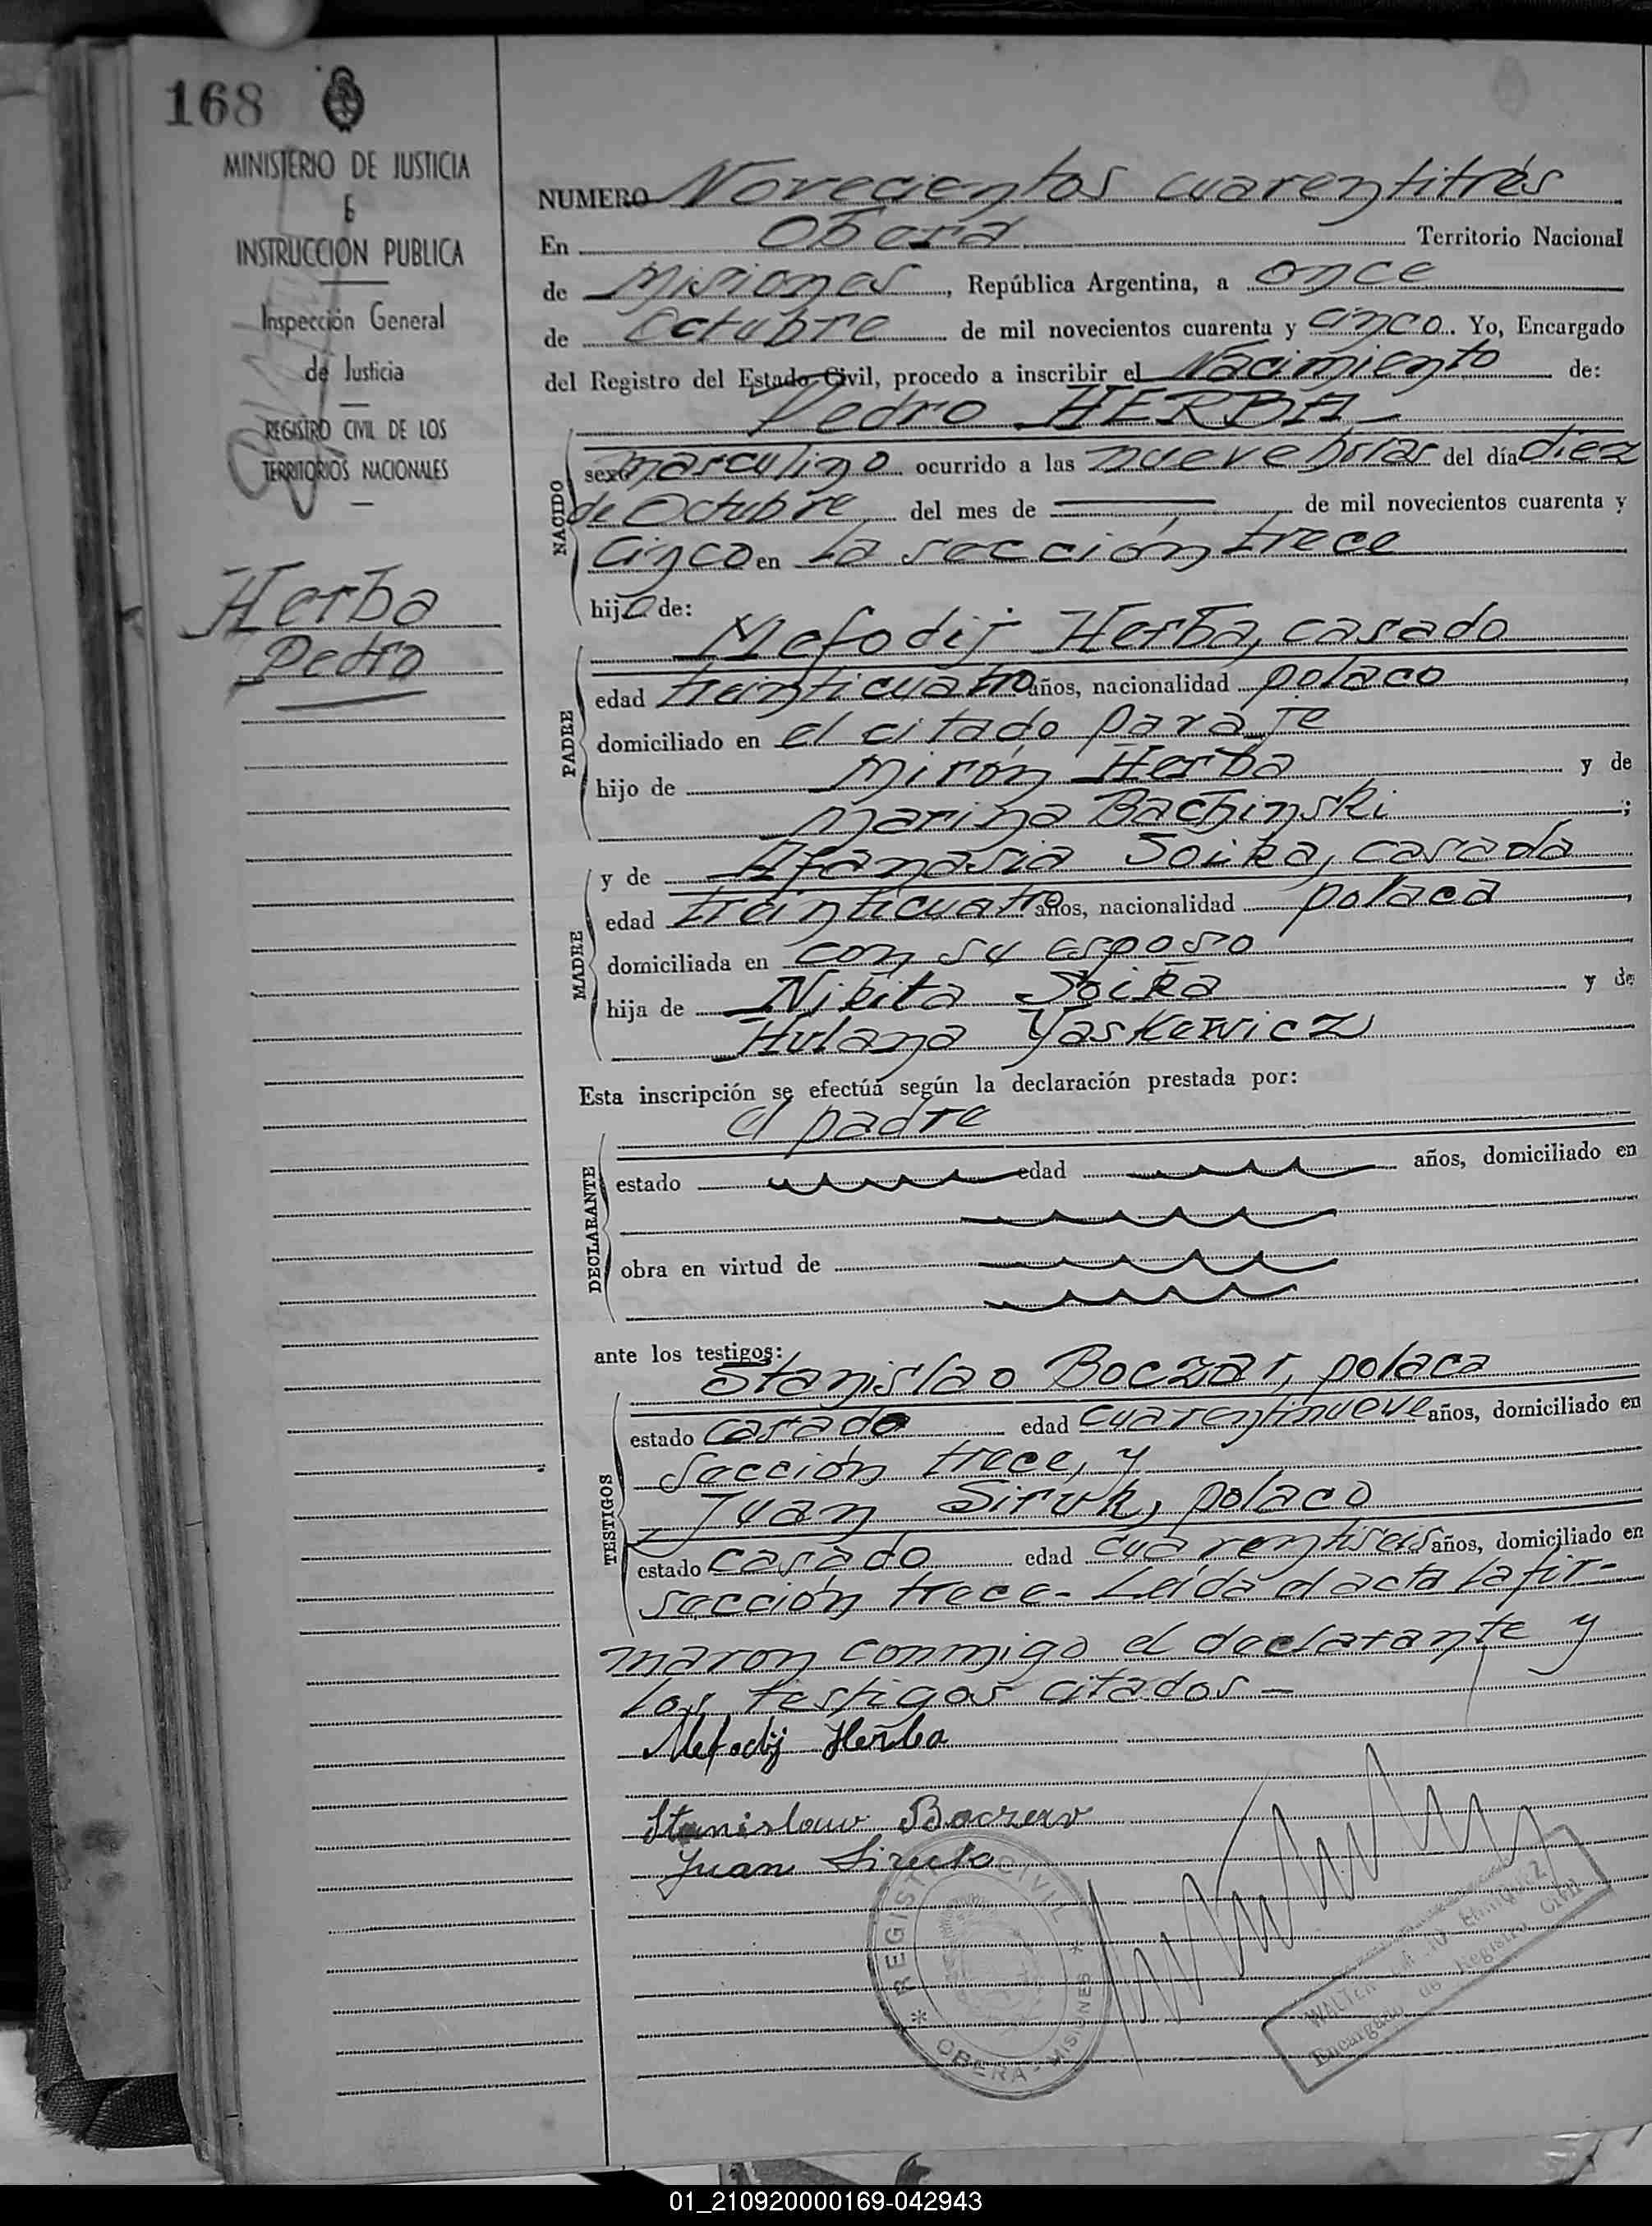 168
MINISTERIO DE JUSTICIA
E
INSTRUCCION PUBLICA
Inspección General
de Justicia
REGISTRO CIVIL DE LOS
TERRITORIOS NACIONALES
Herba
Pedro
NUMERO Novecientos cuarentitrés
En Oberá Territorio Nacional
de Misiones, República Argentina, a once
de Octubre de mil novecientos cuarenta y cinco. Yo, Encargado
del Registro del Estado Civil, procedo a inscribir el Nacimiento de:
Pedro HERBA
NACIDO
sexo masculino ocurrido a las nueve horas del día diez
de Octubre del mes de de mil novecientos cuarenta y
cinco en la sección trece
hijo de:
PADRE
Mefodij Herba, casado
edad treinticuatro años, nacionalidad polaco
domiciliado en el citado paraje
hijo de Mirón Herba y de
Marina Bachinski;
MADRE
y de Afanasia Soika, casada
edad treinticuatro años, nacionalidad polaca
domiciliada en con su esposo
hija de Nikita Soika y de
Hulana Yaskewicz
Esta inscripción se efectúa según la declaración prestada por:
el padre
DECLARANTE
estado edad años, domiciliado en
obra en virtud de
ante los testigos:
TESTIGOS
Stanislao Boczar, polaca
estado casado edad cuarentinueve años, domiciliado en
sección trece, y
Juan Siruk, polaco
estado casado edad cuarentiseis años, domiciliado en
sección trece- Leída el acta la fir-
maron conmigo el declarante y
los testigos citados-
Mefodij Herba
Stanislaw
Juan
* REGISTRO CIVIL *
OBERA - MISIONES
WALTER ENRIQUEZ
Encargado de Registro Civil
01_210920000169-042943